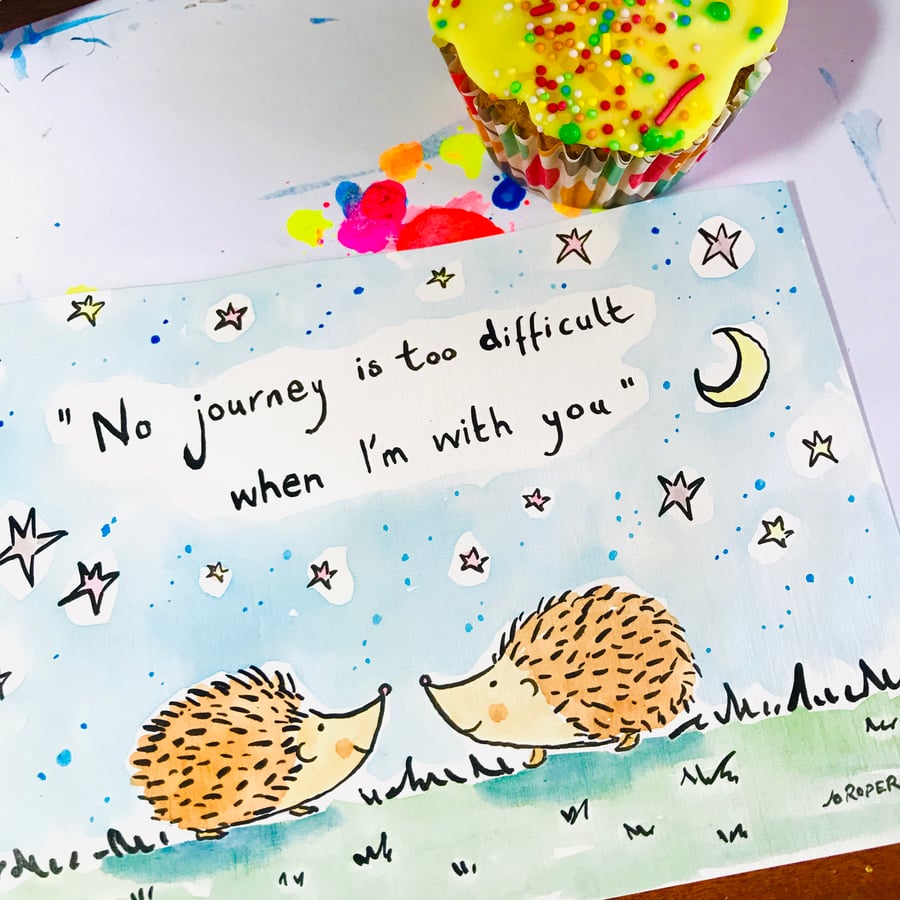 "No journey is too difficult
when I'm with you"
JO ROPER